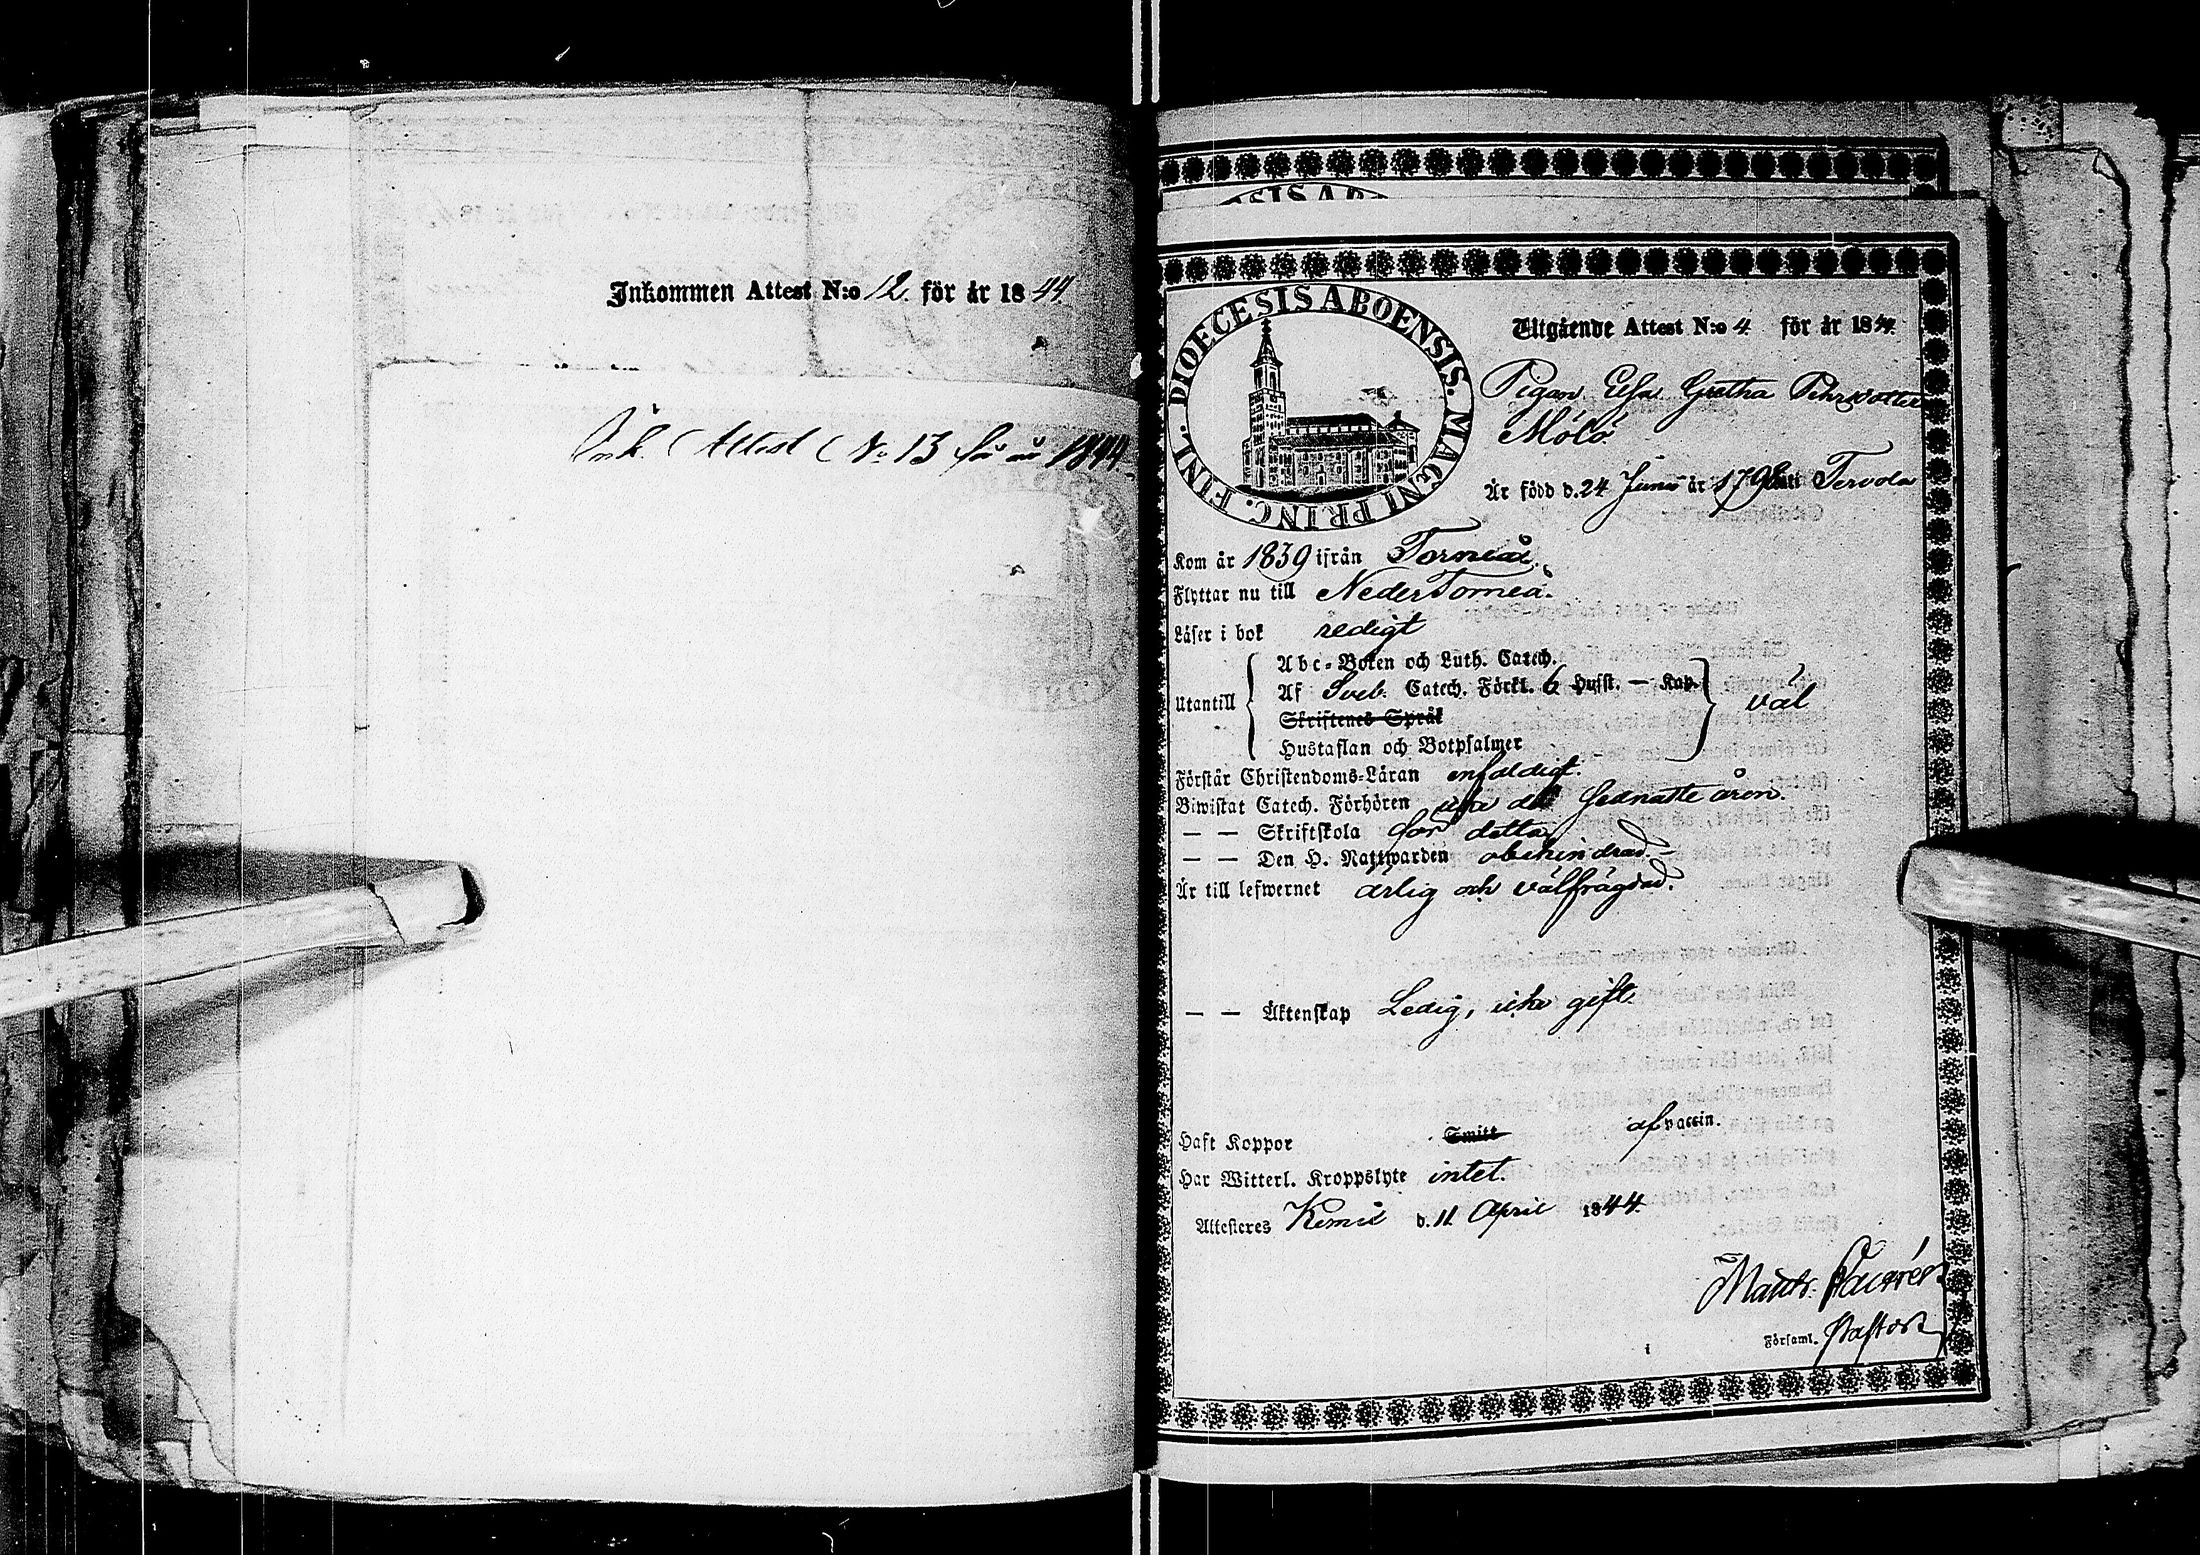 Inkommen Attest N:o 12. för år 1844
Ink. Attest No 13 för år 1844
SIS AB
DIOECESIS ABOENSIS. MAGNI PRINC. FINL.
Utgående Attest N:o 4 för år 1844.
Pigan Elsa Gretha Pehrsdotter
Mölö
Är född d. 24 Junii år 179 uti Tervola
Kom år 1839 ifrån Torneå.
Flyttar nu till Neder Torneå.
Läser i bok redigt
Abc-Boken och Luth. Catech.
Af Sveb. Catech. Förkl. 6 Hufst. — Kap.
Utantill väl
Skriftenes Språk
Hustaflan och Botpsalmer
Förstår Christendoms-Läran enfaldigt.
Biwistat Catech. Förhören icke de sednaste åren.
— — Skriftskola för detta
— — Den H. Nattwarden obehindrad.
Är till lefwernet ärlig och välfrägdad.
— — Äktenskap Ledig, icke gift.
Haft Koppor Smitt af vaccin.
Har Witterl. Kroppslyte intet.
Attesteres Kemi d. 11 April 1844.
Matths
Församl. Pastor